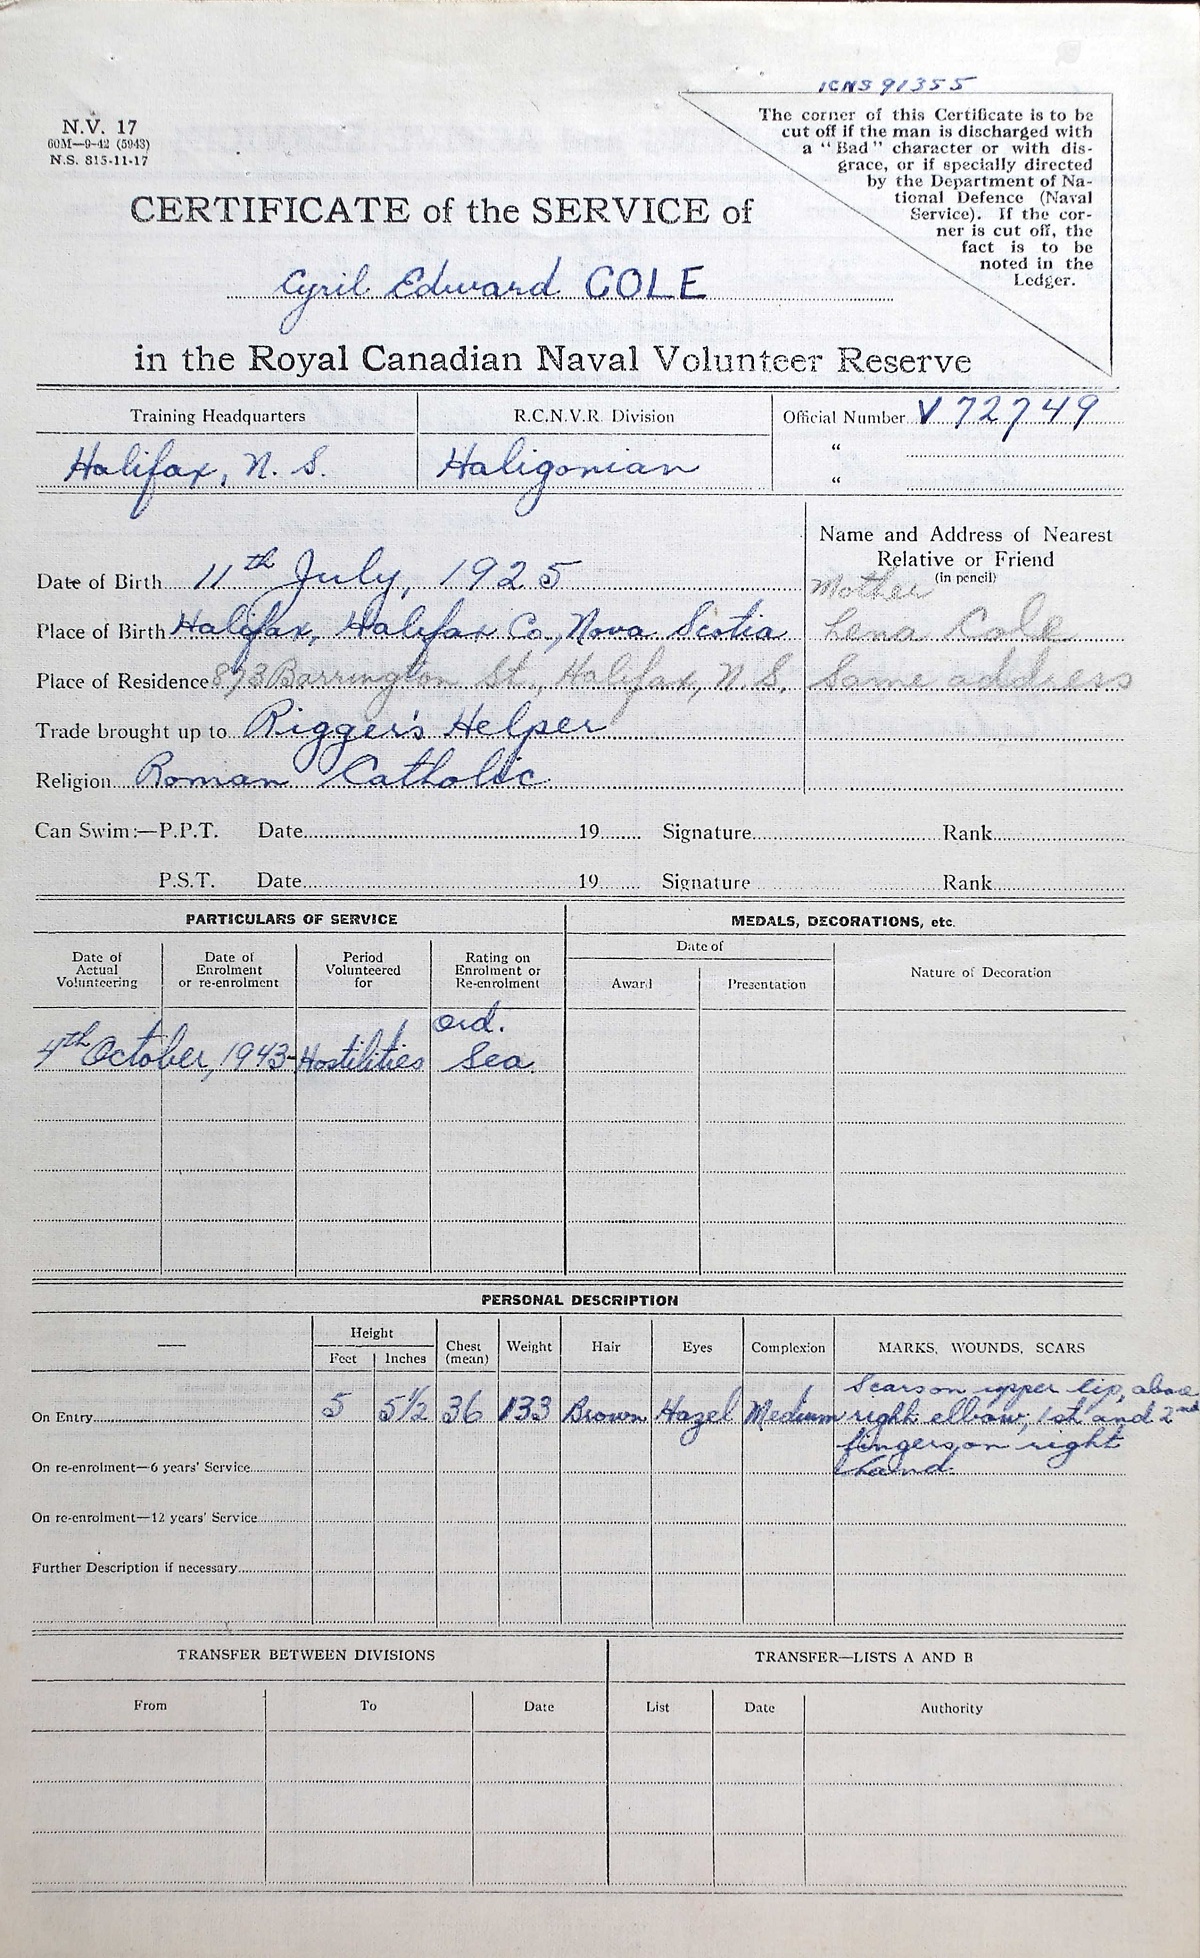 ICNS 91355
N.V. 17
60M—9-42 (5943)
N.S. 815-11-17
The corner of this Certificate is to be
cut off if the man is discharged with
a "Bad" character or with dis-
grace, or if specially directed
by the Department of Na-
tional Defence (Naval
Service). If the cor-
ner is cut off, the
fact is to be
noted in the
Ledger.
CERTIFICATE of the SERVICE of
Cyril Edward COLE
in the Royal Canadian Naval Volunteer Reserve
Training Headquarters R.C.N.V.R. Division Official Number V 72749
Halifax, N. S. Haligonian "
"
Name and Address of Nearest
Relative or Friend
(in pencil)
Date of Birth 11th July, 1925 Mother
Place of Birth Halifax, Halifax Co., Nova Scotia Lena Cole
Place of Residence 873 Barrington St., Halifax, N. S. Same address
Trade brought up to Rigger's Helper
Religion Roman Catholic
Can Swim:—P.P.T. Date 19 Signature Rank
P.S.T. Date 19 Signature Rank
PARTICULARS OF SERVICE MEDALS, DECORATIONS, etc.
Date of Actual Volunteering Date of Enrolment or re-enrolment Period Volunteered for Rating on Enrolment or Re-enrolment Date of Nature of Decoration
Award Presentation
4th October, 1943- Hostilities Ord. Sea.
PERSONAL DESCRIPTION
— Height Chest (mean) Weight Hair Eyes Complexion MARKS, WOUNDS, SCARS
Feet Inches
On Entry 5 5½ 36 133 Brown Hazel Medium Scars on upper lip, above
right elbow, 1st and 2nd
fingers on right
hand.
On re-enrolment—6 years' Service
On re-enrolment—12 years' Service
Further Description if necessary
TRANSFER BETWEEN DIVISIONS TRANSFER—LISTS A AND B
From To Date List Date Authority